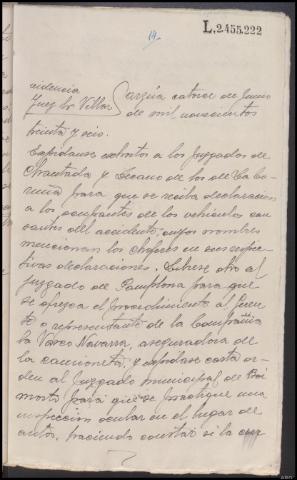 19.
L.2.455.222
videncia
Juez Sr. Villar
Arzúa catorce de Junio
de mil novecientos
treinta y seis.
Expídanse exhortos a los Juzgados de
Chantada y Decano de los de La Co-
ruña para que se reciba declaración
a los ocupantes de los vehículos cau-
santes del accidente, cuyos nombres
mencionan los chóferes en sus respec-
tivas declaraciones; líbrese otro al
Juzgado de Pamplona para que
se ofrezca el procedimiento al Geren-
te o representante de la Compañía
la Vasco Navarra, aseguradora de
la camioneta, y expídase carta or-
den al Juzgado municipal de Boi-
morto para que se practique una
inspección ocular en el lugar de
autos, haciendo constar si la